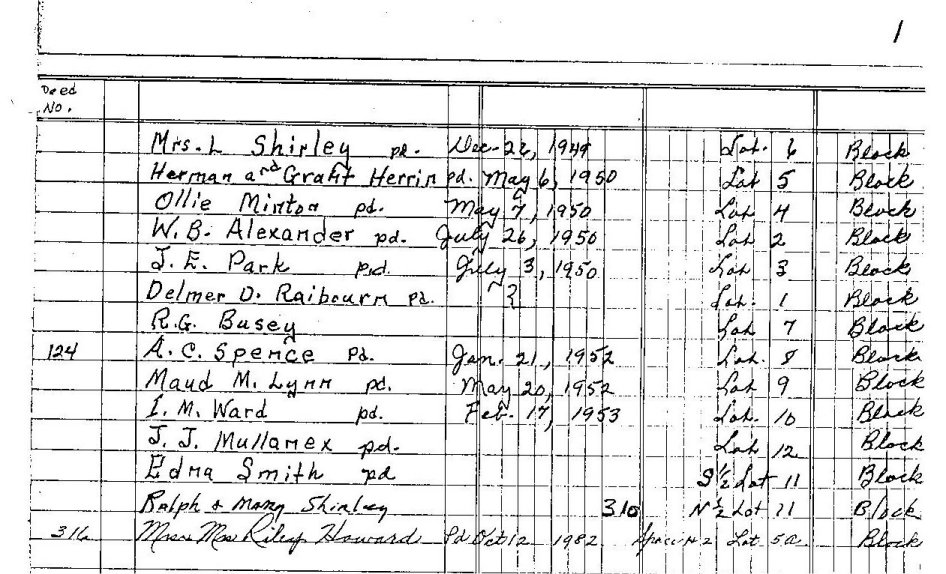 1
Deed
No.
Mrs. L Shirley pd. Dec. 22, 1949 Lot. 6 Block
Herman and Grant Herrin pd. May 6, 1950 Lot 5 Block
Ollie Minton pd. May 7, 1950 Lot 4 Block
W. B. Alexander pd. July 26, 1950 Lot 2 Block
J. E. Park pd. July 3, 1950 Lot 3 Block
Delmer D. Raibourn pd. ? Lot. 1 Block
R.G. Busey Lot 7 Block
124 A. C. Spence Pd. Jan. 21, 1952 Lot. 8 Block
Maud M. Lynn pd. May 20, 1952 Lot 9 Block
I. M. Ward pd. Feb. 17, 1953 Lot. 10 Block
J. J. Mullanex pd. Lot 12 Block
Edna Smith pd S 1/2 Lot 11 Block
Ralph & Mary Shirley 310 N 1/2 Lot 11 Block
316 Riley Howard Pd Oct 12 1982 Lot 5a Block